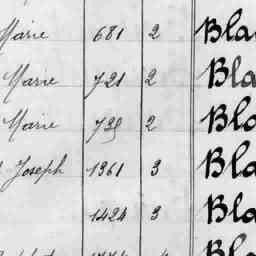 Marie 681 2 Bla
Marie 721 2 Bla
Marie 2 Bla
Joseph 1361 3 Bla
1424 3 Bla
Bla